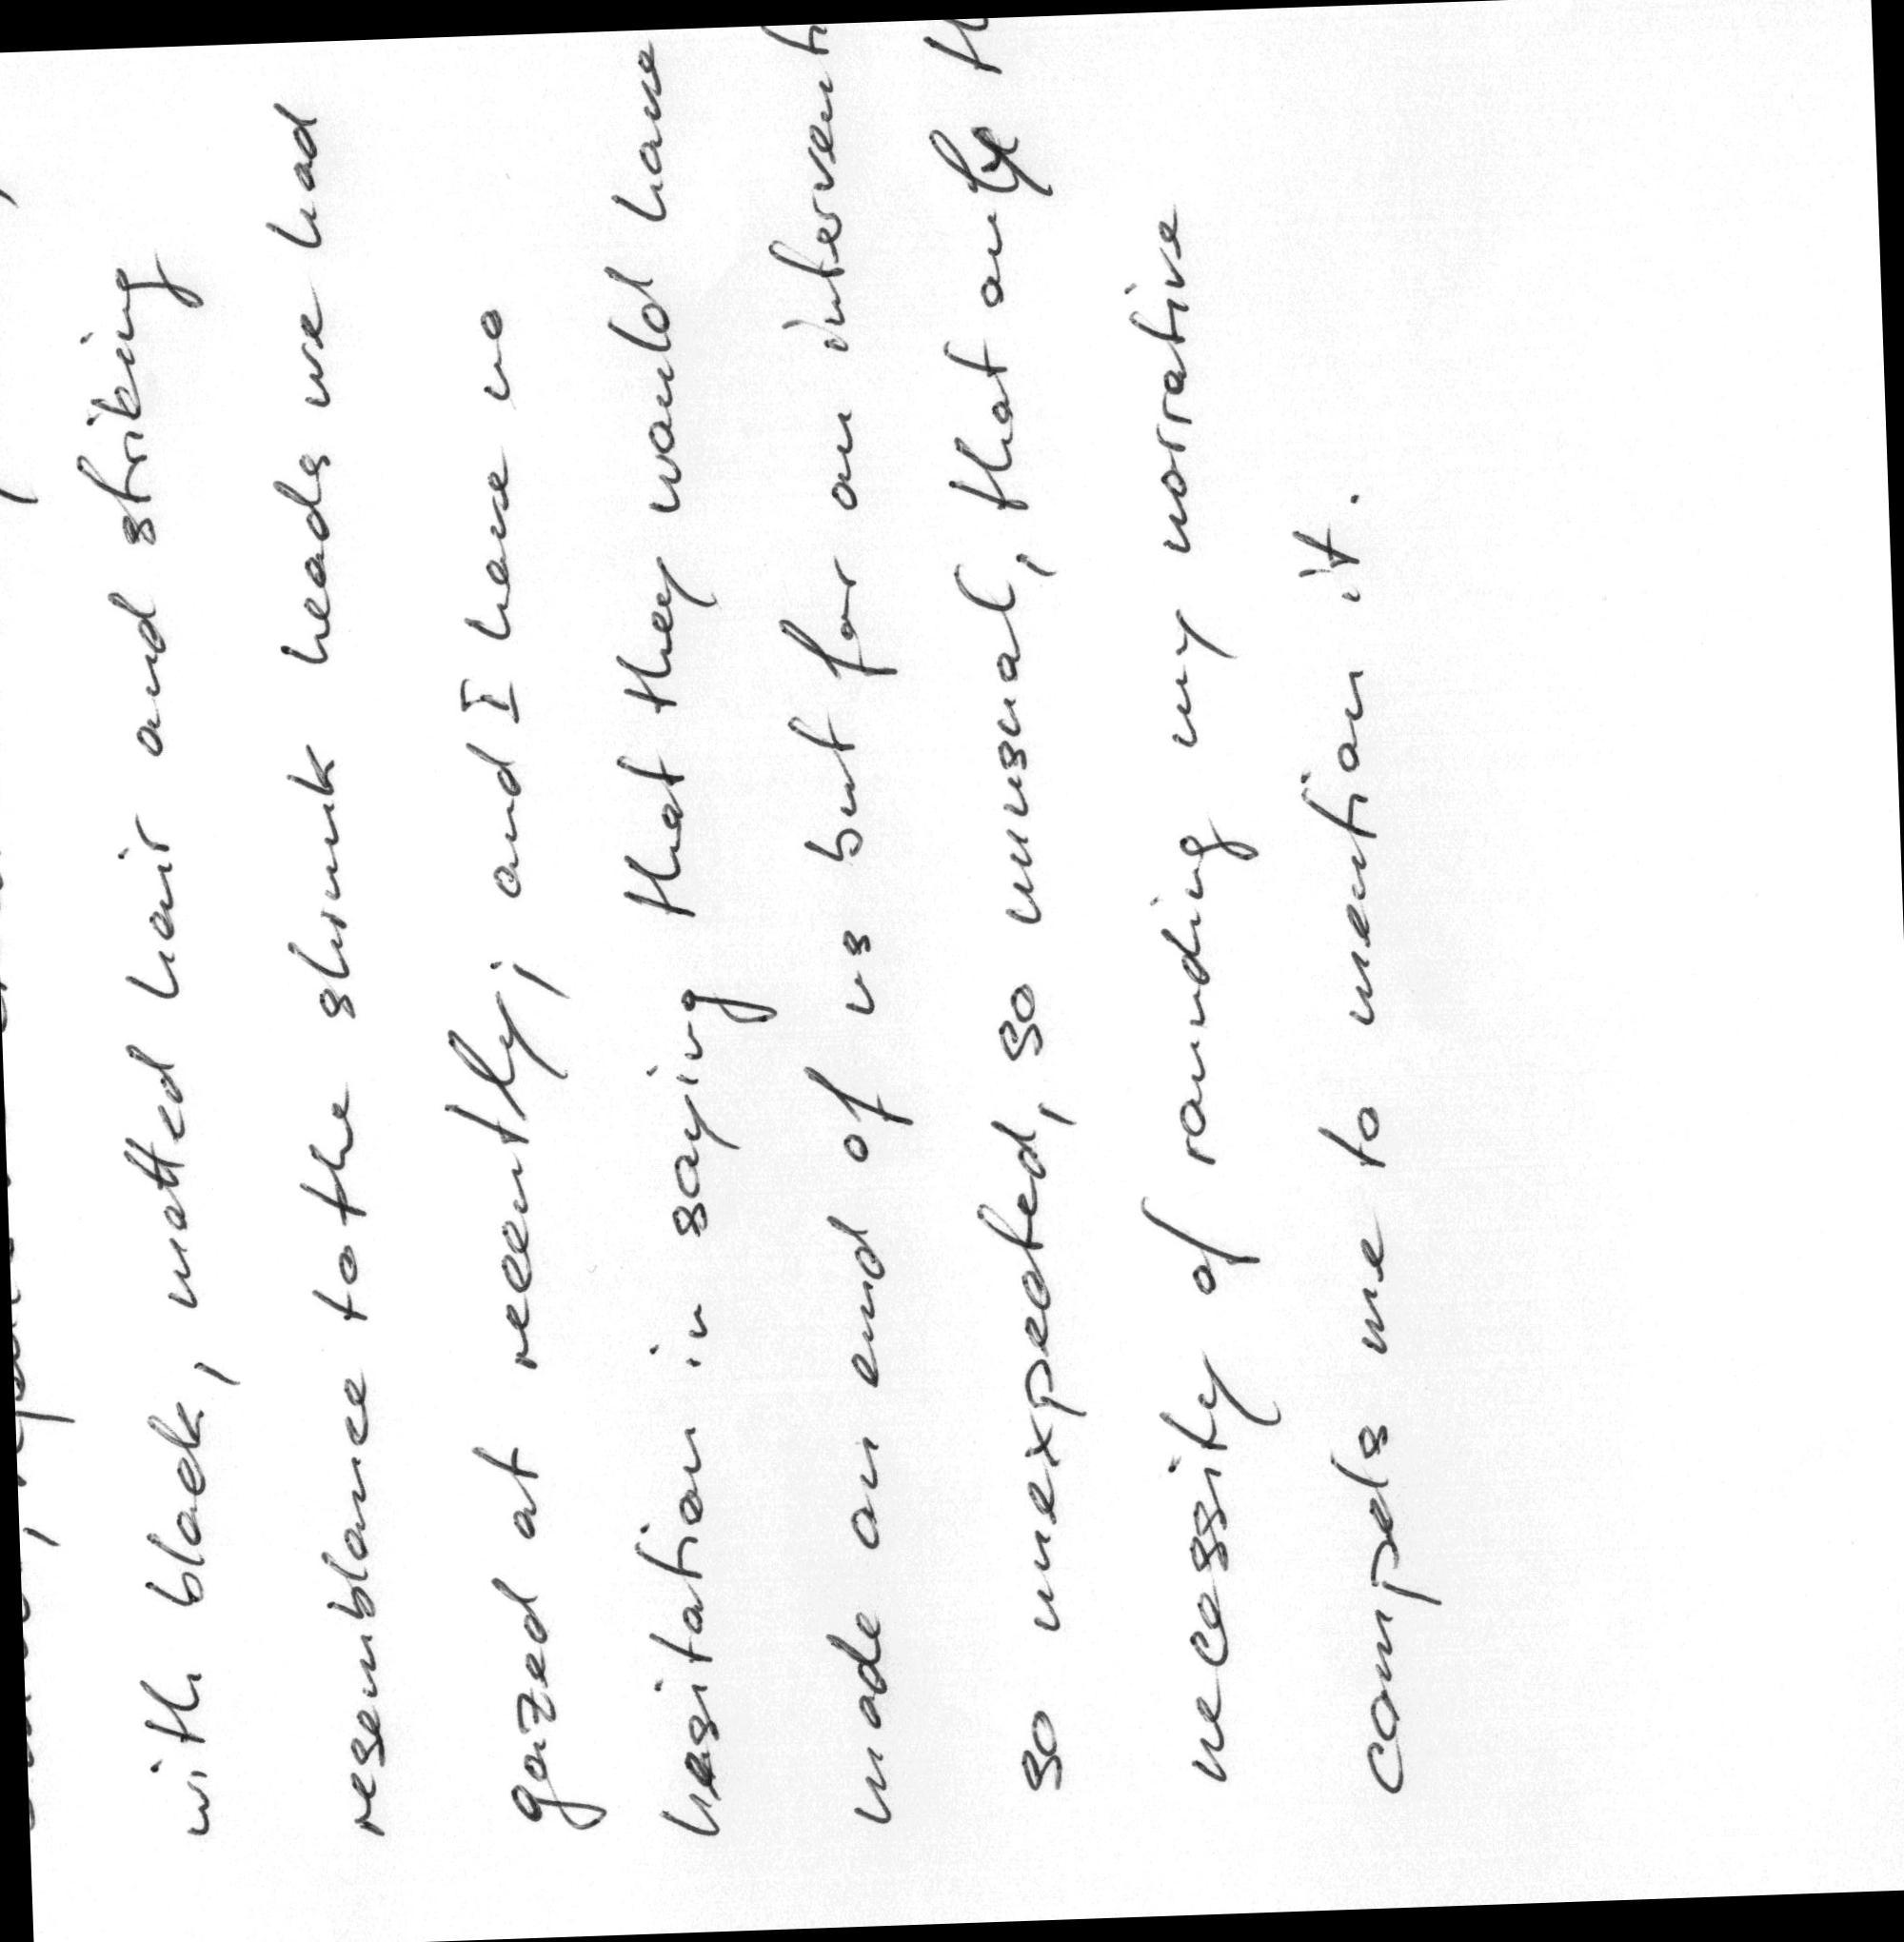 with black, matted hair and striking
resemblance to the shrunk heads we had
gazed at recently; and I have no
hesitation in saying that they would have
made an end of us but for an interventi
so unexpected, so unusual, that only th
necessity of rounding my narrative
compels me to mention it.